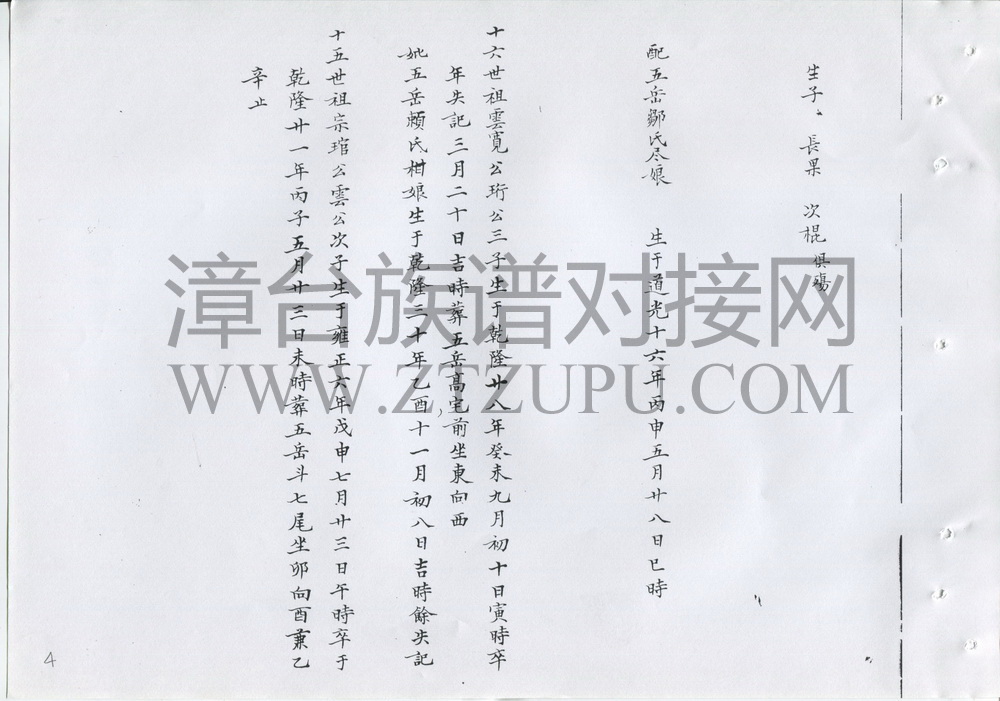 生子、長果 次棍俱殤
配五岳鄒氏尽娘 生于道光十六年丙申五月廿八日巳時
十六世祖雲寬公珩公三子生于乾隆廿八年癸未九月初十日寅時卒
年失記三月二十日吉時葬五岳高宅前坐東向西
妣五岳賴氏柑娘生于乾隆三十年乙酉十一月初八日吉時餘失記
十五世祖宗琯公雲公次子生于雍正六年戊申七月廿三日午時卒于
乾隆廿一年丙子五月廿三日未時葬五岳斗七尾坐卯向酉兼乙
辛止
漳台族谱对接网
WWW.ZTZUPU.COM
4